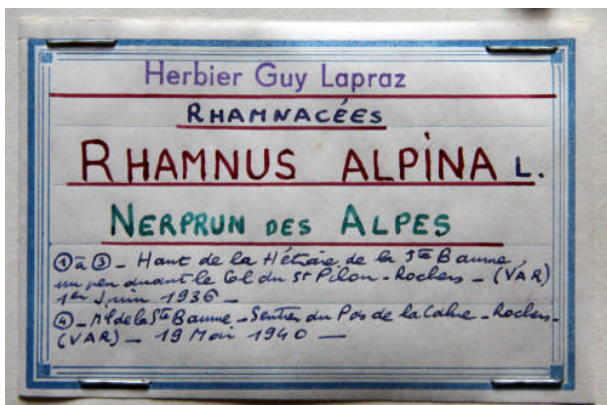 Herbier Guy Lapraz
RHAMNACÉES
RHAMNUS ALPINA L.
NERPRUN DES ALPES
① à ③ - Haut de la Hétraie de la Ste Baume,
un peu avant le Col du St Pilon - Rochers - (VAR)
1er Juin 1936 -
④ - Mt de la Ste Baume - Sentier du Pas de la Cabre - Rochers -
(VAR) - 19 Mai 1940 -